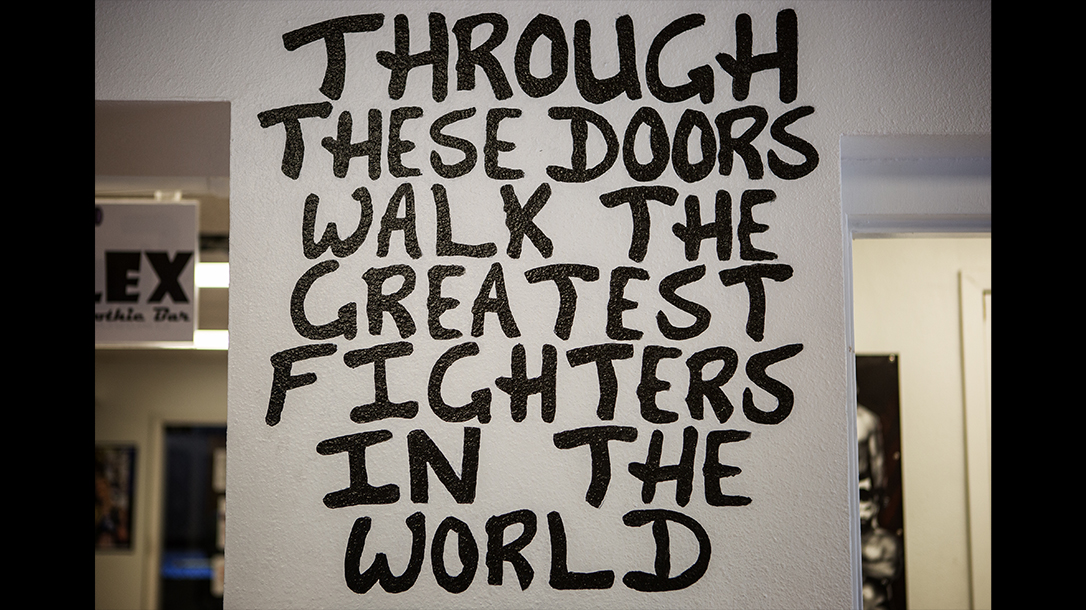 THROUGH
THESE DOORS
WALK THE
GREATEST
FIGHTERS
IN THE
WORLD
LEX
Bar